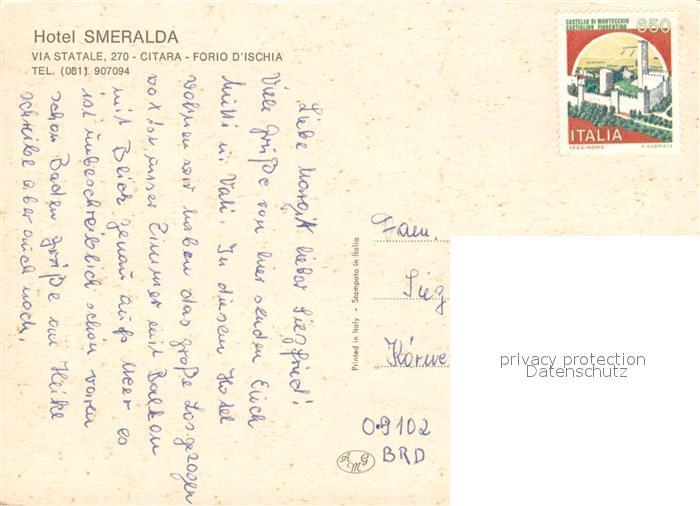 Hotel SMERALDA
VIA STATALE, 270 - CITARA - FORIO D'ISCHIA
TEL. (081) 907094
CASTELLO DI MONTECCHIO
CASTIGLION FIORENTINO
650
ITALIA
I.P.Z.S.-ROMA
Liebe Margitt lieber Siegfried!
Viele Grüße von hier senden Euch
Mutti u. Vati. In diesem Hotel
wohnen wir haben das große Los gezogen
was ist unser Zimmer mit Balkon
mit Blick genau aufs Meer es
ist unbeschreiblich schön waren
schon Baden Grüße an Heike
schreibe aber auch noch.
Printed in Italy - Stampato in Italia
Fam.
Sieg
Körne
09102
BRD
A G M
privacy protection
Datenschutz